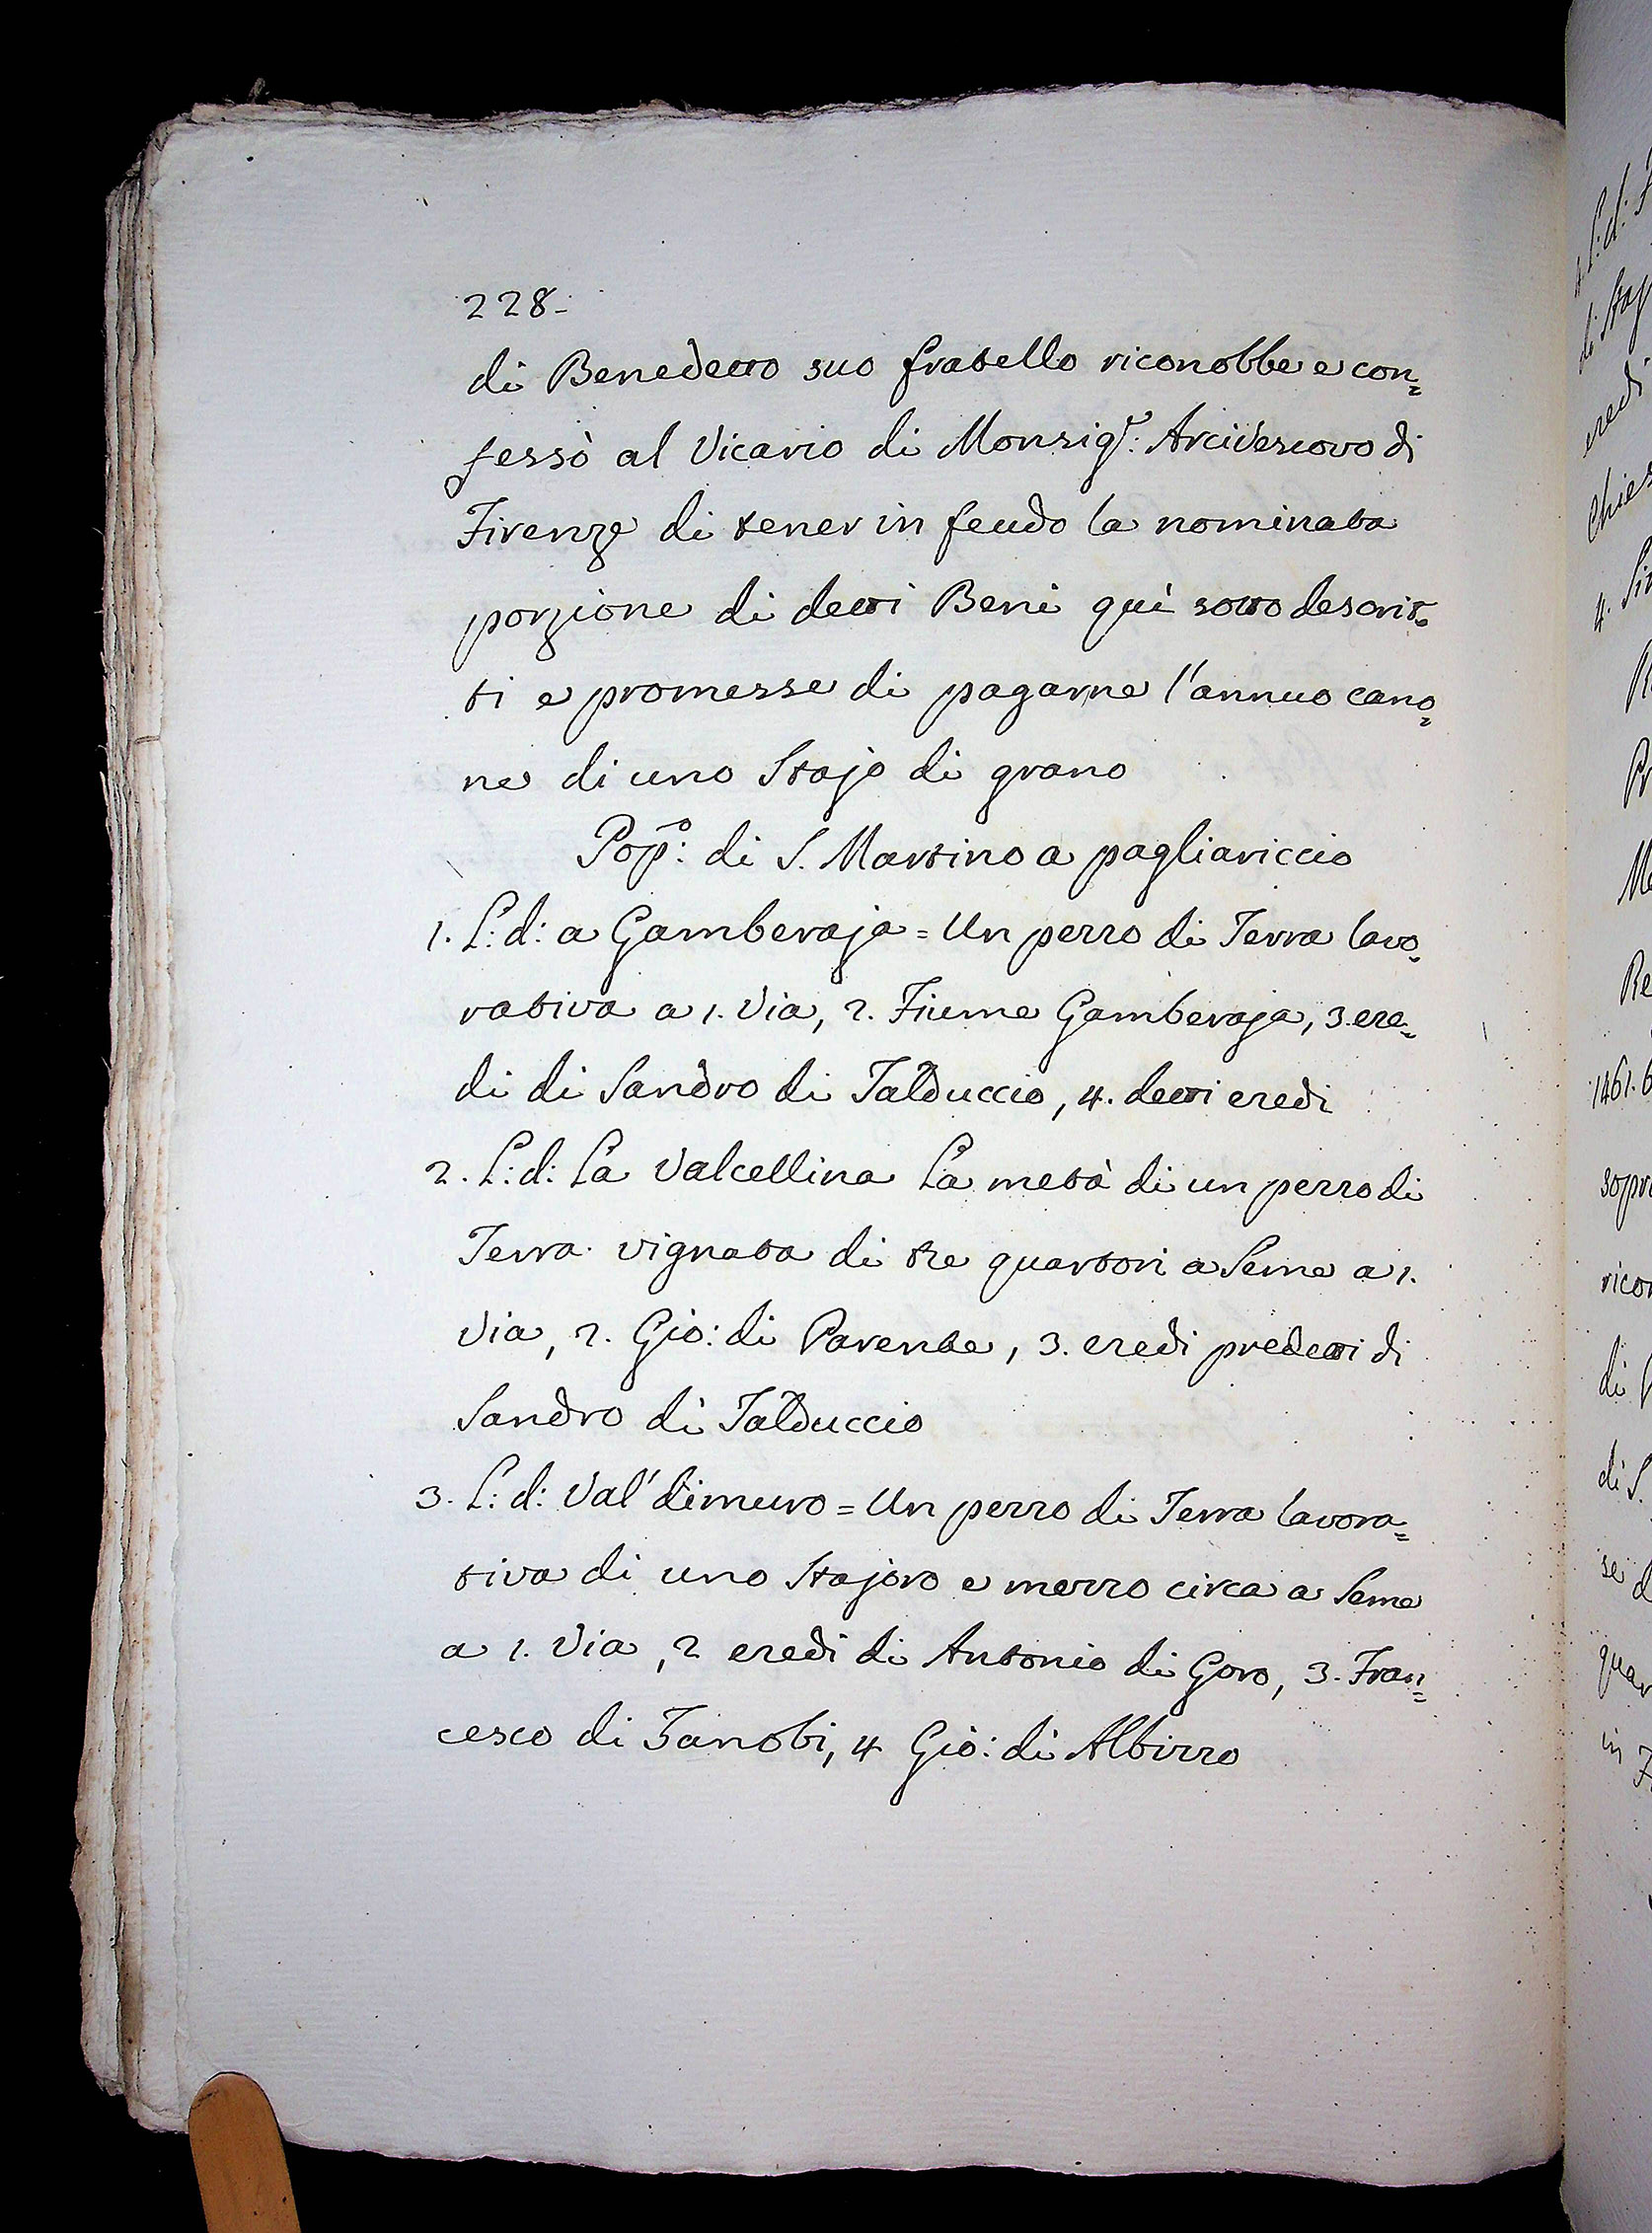 228.
di Benedetto suo fratello riconobbe e con=
fessò al Vicario di Monsig.r: Arcivescovo di
Firenze di tener in feudo la nominata
porzione di detti Beni quì sotto descrit=
ti e promesse di pagarne l'annuo cano=
ne di uno Stajo di grano
Pop.o: di S. Martino a pagliariccio
1. L: d: a Gamberaja = Un pezzo di Terra lavo=
rativa a 1. Via, 2. Fiume Gamberaja, 3. ere=
di di Sandro di Talduccio, 4. detti eredi
2. L: d: La Valcellina La metà di un pezzo di
Terra vignata di tre quartori a Seme a 1.
Via, 2. Gio: di Parente, 3. eredi predetti di
Sandro di Talduccio
3. L: d: Val' dimuro = Un pezzo di Terra lavora=
tiva di uno Stajoro e mezzo circa a Seme
a 1. Via, 2 eredi di Antonio di Goro, 3. Fran=
cesco di Zanobi, 4 Gio: di Albizzo